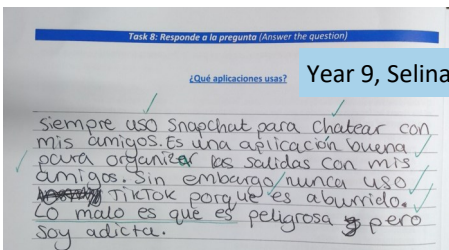 Task 8: Responde a la pregunta (Answer the question)
¿Qué aplicaciones usas?
Year 9, Selina
siempre uso snapchat para chatear con
mis amigos. Es una aplicación buena
para organizar las salidas con mis
amigos. Sin embargo, nunca uso
TikTok porque es aburrido.
Lo malo es que es peligrosa pero
soy adicta.